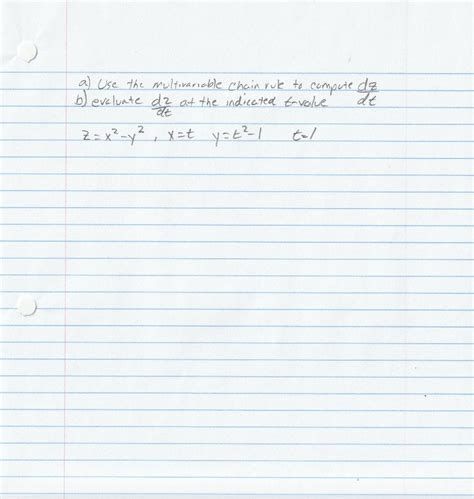 a) Use the multivariable chain rule to compute dz/dt
b) evaluate dz/dt at the indicated t-value
z=x²-y², x=t y=t²-1 t=1